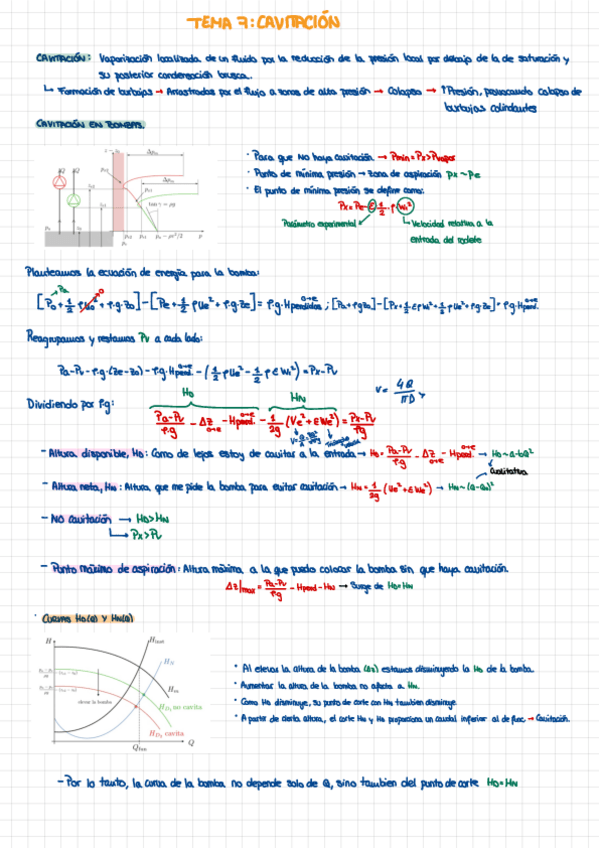 TEMA 7: CAVITACIÓN
CAVITACIÓN: Vaporización localizada de un fluido por la reducción de la presión local por debajo de la de saturación y
su posterior condensación brusca.
↳ Formación de burbujas → Arrastradas por el flujo a zonas de alta presión → Colapso → ↑Presión, provocando colapso de
burbujas colindantes
CAVITACIÓN EN BOMBAS.
· Para que NO haya cavitación → Pmin = Px > Pvapor
· Punto de mínima presión → zona de aspiración Px ~ Pe
· El punto de mínima presión se define como:
Px = Pe - ε 1/2 · ρ Wi²
Parámetro experimental
Velocidad relativa a la
entrada del rodete
Planteamos la ecuación de energía para la bomba:
Reagrupamos y restamos Pv a cada lado:
Pa-Pv - ρ·g·(Ze-Zo) - ρ·g·Hperd. - (1/2 ρUe² - 1/2 ρ ε Wi²) = Px-Pv
V = 4Q/πD²
Dividiendo por ρg:
HD
HN
(Pa-Pv)/ρ·g - ΔZ - Hperd. - 1/2g (Ve² + εWe²) = (Px-Pv)/ρg
- Altura disponible, HD: Como de lejos estoy de cavitar a la entrada → HD = (Pa-Pv)/ρ·g - ΔZ - Hperd. → HD ~ a-bQ²
Cualitativa
- Altura neta, HN: Altura que me pide la bomba para evitar cavitación → HN = 1/2g (Ue² + εWe²) → HN ~ (Q-Qo)²
- NO cavitación → HD > HN
↳ Px > Pv
- Punto máximo de aspiración: Altura máxima a la que puedo colocar la bomba sin que haya cavitación.
ΔZ|max = (Pa-Pv)/ρg - Hperd - HN → Surge de HD=HN
· CURVAS HD(Q) Y HN(Q)
H
Hinst
HN
Hm
elevar la bomba
HD1 no cavita
HD2 cavita
Q
· Al elevar la altura de la bomba (Δz) estamos disminuyendo la HD de la bomba.
· Aumentar la altura de la bomba no afecta a HN.
· Como HD disminuye, su punto de corte con HN tambien disminuye.
· A partir de cierta altura, el corte HD y HN proporciona un caudal inferior al de func → Cavitación.
- Por lo tanto, la curva de la bomba no depende solo de Q, sino tambien del punto de corte HD=HN